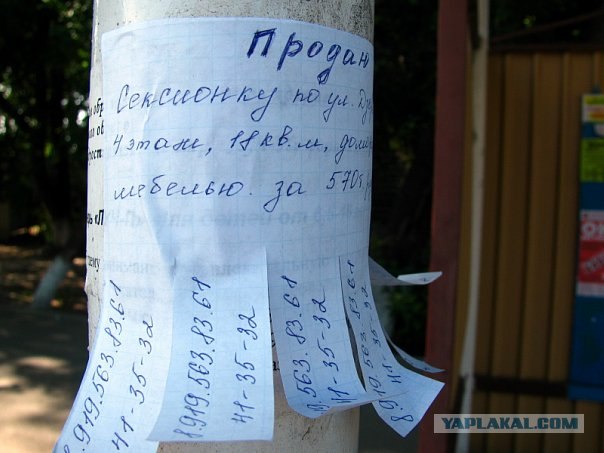 Продаю
Сексионку по ул. Дз
4 этаж, 18 кв.м, дом
мебелью. за 570т.
8.919.563.83.61
41-35-32
8.919.563.83.61
41-35-32
8.919.563.83.61
41-35-32
8.919.563.83.61
41-35-32
YAPLAKAL.COM